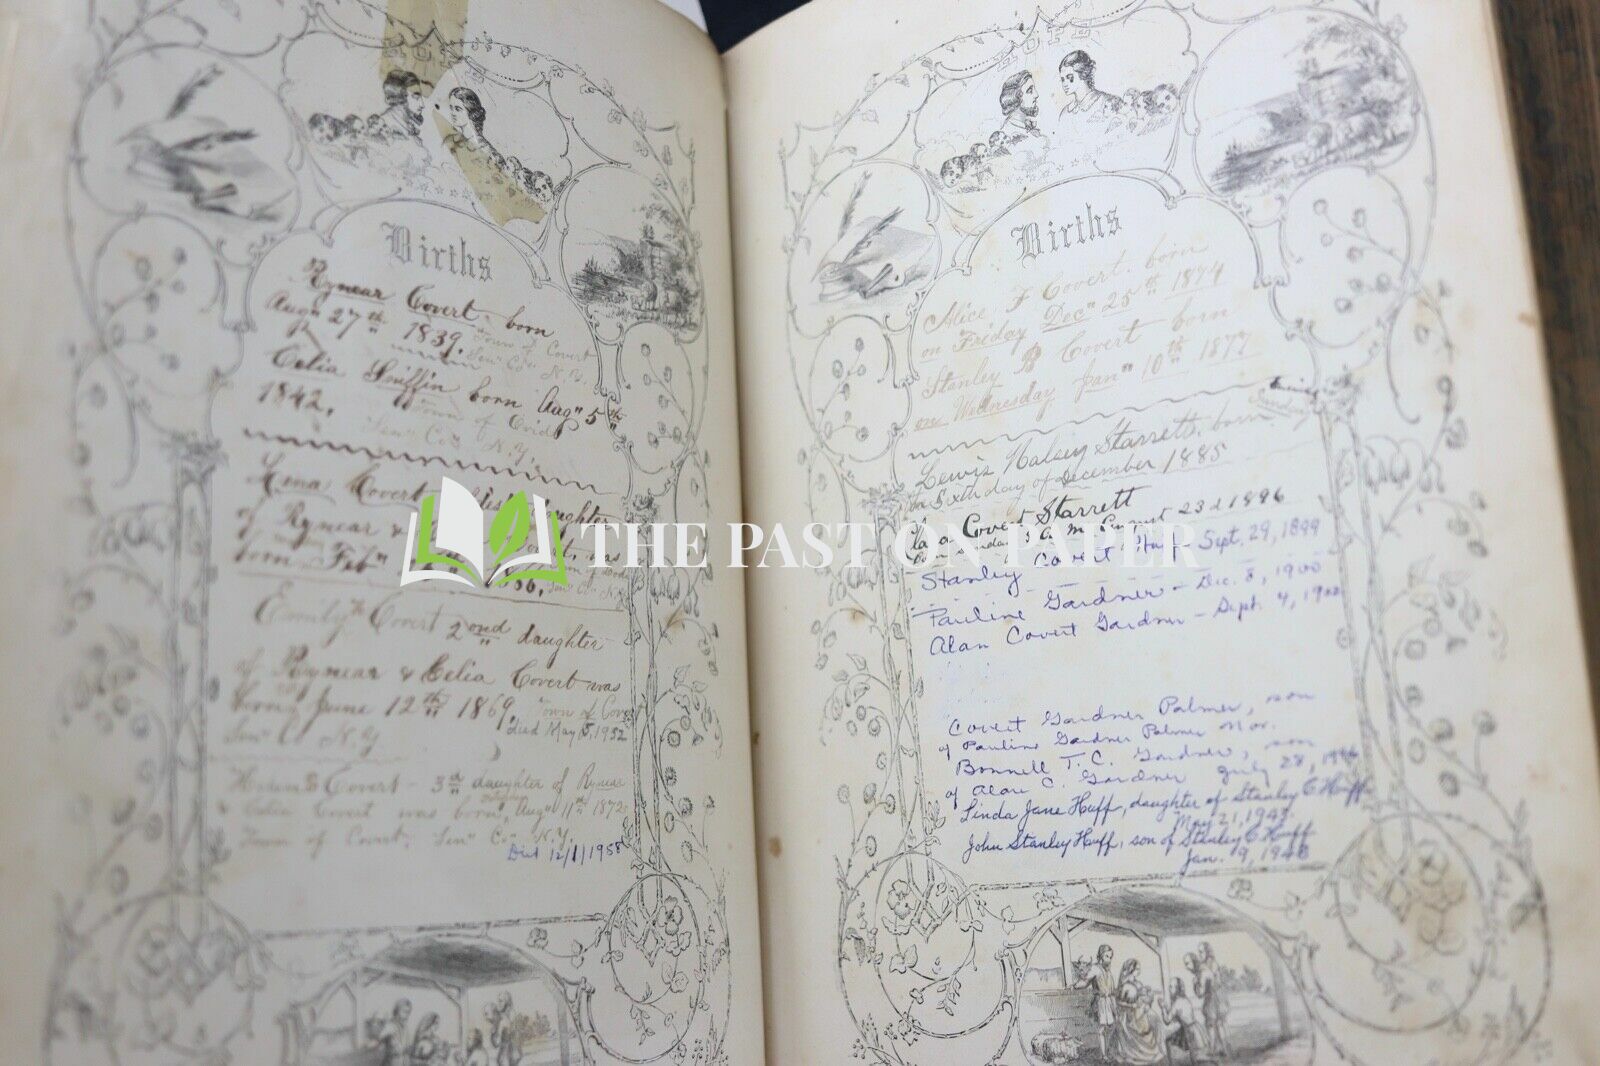 HOPE
Births
Rynear Covert born
Augⁿ 27th 1839. Town of Covert
Senⁿ Coⁿ N.Y.
Celia Sniffin born Augⁿ 5th
1842. Town of Ovid
Senⁿ Coⁿ N.Y.
Covert daughter
of Rynear & was
born Febⁿ
Emily Covert 2ond daughter
of Rynear & Celia Covert was
born June 12th 1869. Town of
Senⁿ Co N.Y. Died May 15, 1952
Covert - 3rd daughter of Rynear
& Celia Covert was born, Augⁿ 11th 1872
Town of Covert, Senⁿ Coⁿ N.Y.
Died 12/1/1958
HOPE
Births
Alice F Covert born
on Friday Decⁿ 25th 1874
Stanley B Covert born
on Wednesday Janⁿ 10th 1877
Lewis Halsey Starrett, born
Sixth day of December 1885
Covert Starrett
A.M. August 23d 1896
Stanley Covert Huff - Sept. 29, 1899
Pauline Gardner - Dec. 8, 1900
Alan Covert Gardner - Sept. 4, 1902
Covert Gardner Palmer, son
of Pauline Gardner Palmer Nov.
Bonnell T. C. Gardner, son
of Alan C. Gardner July 28,
Linda Jane Huff, daughter of Stanley C Huff
May 21, 1943
John Stanley Huff, son of Stanley C Huff
Jan. 9, 1948
THE PAST ON PAPER